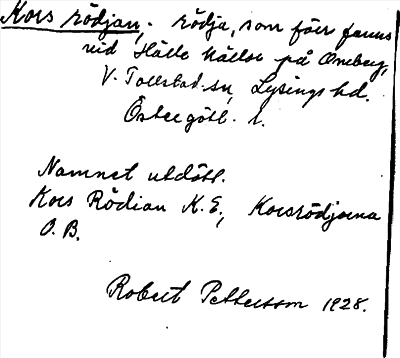 Kors rödjan, - rödja, som förr fanns
vid Hålle källor på Omberg,
V. Tollstad sn, Lysings hd.
Östergötl. l.
Namnet utdött.
Kors Rödian K. E., Korsrödjorna
O. B.
Robert Pettersson 1928.